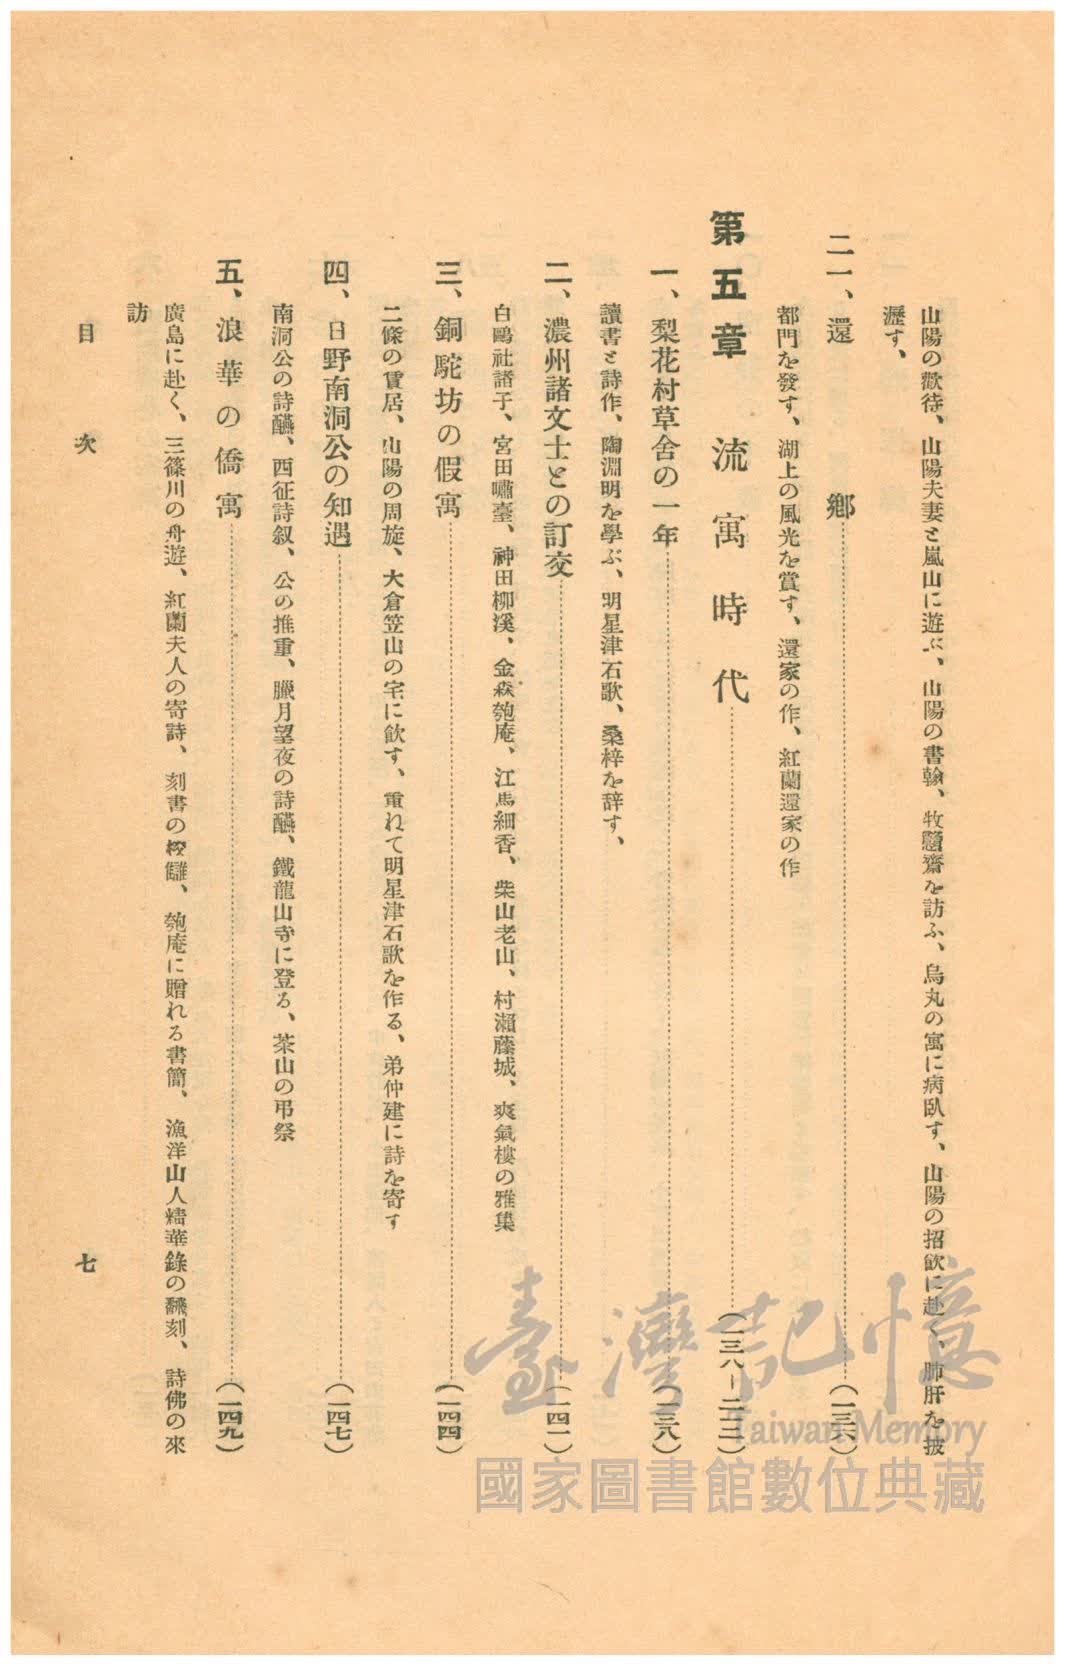 山陽の歡待、山陽夫妻と嵐山に遊ぶ、山陽の書翰、牧贛齋を訪ふ、烏丸の寓に病臥す、山陽の招飮に赴く、肺肝を披
瀝す、
二一、還鄕…(一三六)
都門を發す、湖上の風光を賞す、還家の作、紅蘭還家の作
第五章 流寓時代…(一三八ー二二二)
一、梨花村草舍の一年…(一三八)
讀書と詩作、陶淵明を學ぶ、明星津石歌、桑梓を辞す、
二、濃州諸文士との訂交…(一四一)
白鷗社諸子、宮田嘯臺、神田柳溪、金森匏庵、江馬細香、柴山老山、村瀨藤城、爽氣樓の雅集
三、銅駝坊の假寓…(一四四)
二條の賃居、山陽の周旋、大倉笠山の宅に飮す、重ねて明星津石歌を作る、弟仲建に詩を寄す
四、日野南洞公の知遇…(一四七)
南洞公の詩醼、西征詩叙、公の推重、臘月望夜の詩醼、鐵龍山寺に登る、茶山の弔祭
五、浪華の僑寓…(一四九)
廣島に赴く、三篠川の舟遊、紅蘭夫人の寄詩、刻書の校讎、匏庵に贈れる書簡、漁洋山人精華錄の飜刻、詩佛の來
訪
目次
七
臺灣記憶
Taiwan Memory
國家圖書館數位典藏